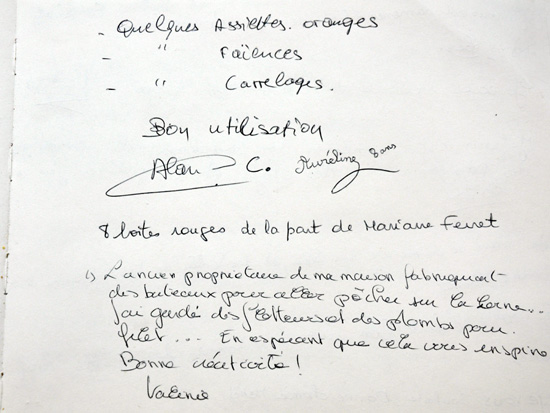 - Quelques Assiettes. oranges
- " Faïences
- " Carrelages.
Bon utilisation
Alan C. Auréline 8 ans
8 boîtes rouges de la part de Mariane Ferret
L'ancien propriétaire de ma maison fabriquait
des bateaux pour aller pêcher sur la Marne...
j'ai gardé des flotteurs et des plombs pour
filet... En espérant que cela vous inspire
Bonne créativité!
Valérie